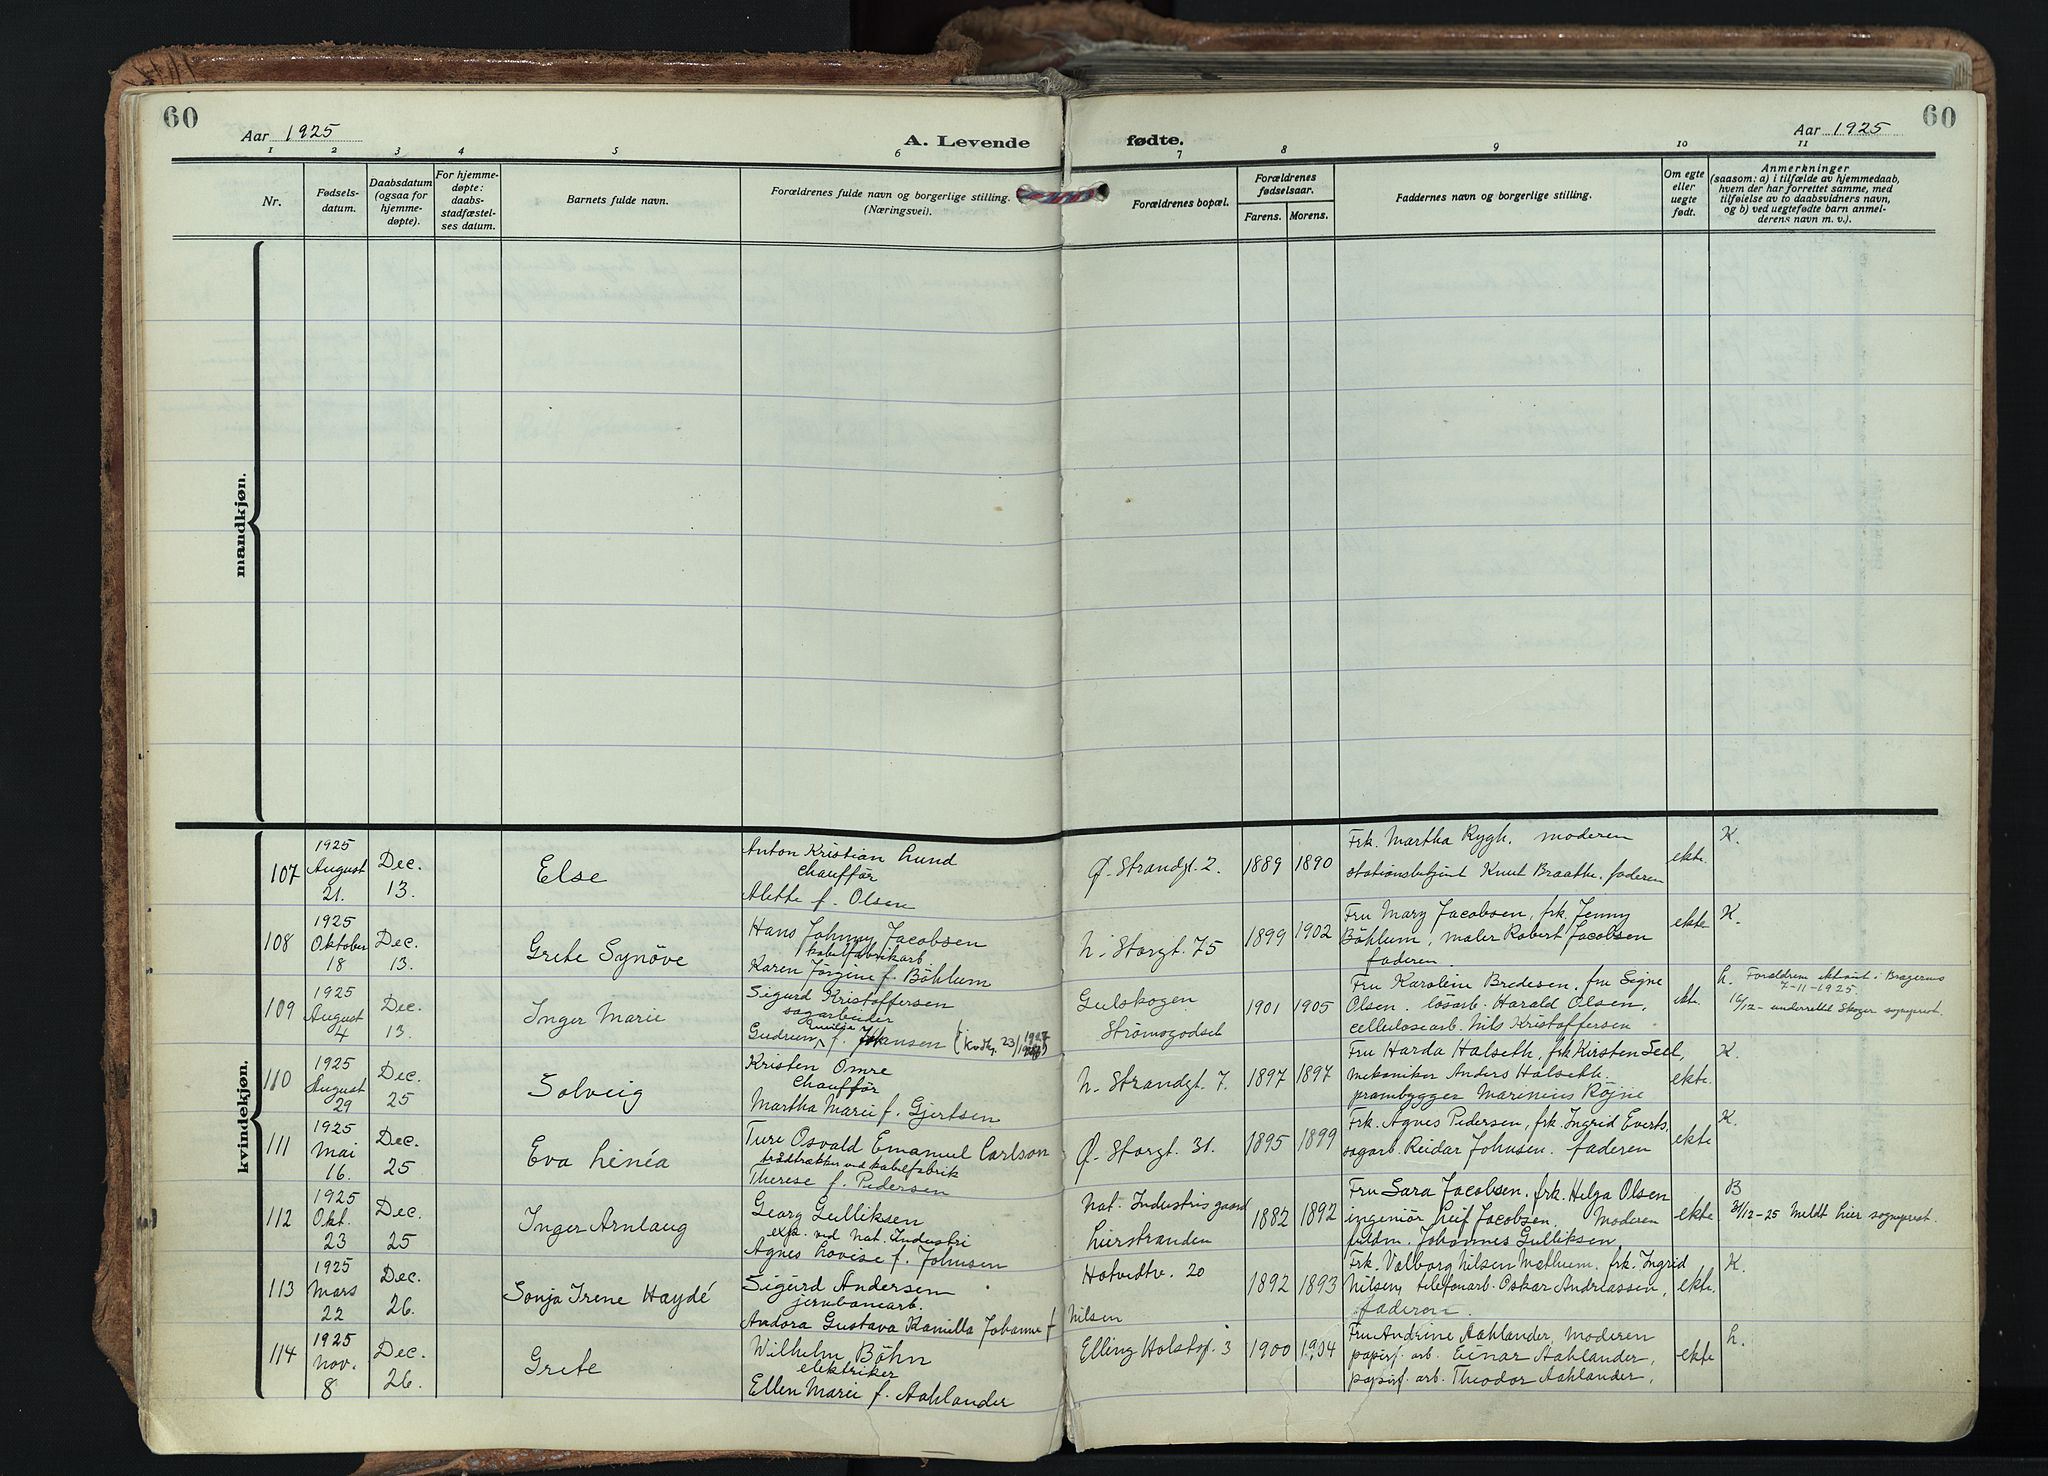 60
Aar 1925
A. Levende fødte.
Aar 1925
60
1 2 3 4 5 6 7 8 9 10 11
Nr.
Fødsels-
datum.
Daabsdatum
(ogsaa for
hjemme-
døpte).
For hjemme-
døpte:
daabs-
stadfæstel-
ses datum.
Barnets fulde navn.
Forældrenes fulde navn og borgerlige stilling.
(Næringsvei).
Forældrenes bopæl.
Forældrenes
fødselsaar.
Farens. Morens.
Faddernes navn og borgerlige stilling.
Om egte
eller
uegte
født.
Anmerkninger
(saasom: a) i tilfælde av hjemmedaab,
hvem der har forrettet samme, med
tilføielse av to daabsvidners navn,
og b) ved uegtefødte barn anmel-
derens navn m. v.).
mandkjøn.
kvindekjøn.
107
1925
August
21.
Dec.
13.
Else
Anton Kristian Lund
Chauffør
Alette f. Olsen
Ø. Strandgt. 2.
1889 1890
Frk. Martha Rygh. moderen
stationsbetjent Knut Braathe. faderen
ekte.
K.
108
1925
Oktober
18
Dec.
13.
Grete Synøve
Hans Johnny Jacobsen
kabelfabrikarb
Karen Jørgine f. Böhlum
N. Storgt. 75
1899 1902
Fru Mary Jacobsen, frk. Jenny
Böhlum, maler Robert Jacobsen
faderen.
ekte
K.
109
1925
August
4
Dec.
13.
Inger Marie
Sigurd Kristoffersen
sagarbeider
Gudrun Emilie f. Johansen
Gulskogen
Strømsgodset
1901 1905
Fru Karoline Bredesen. fru Signe
Olsen. løsarb. Harald Olsen,
cellulosearb. Nils Kristoffersen
ekt.
L. Forældrene ekteviet i Bragernes
7-11-1925.
16/12- underrettet Skoger sogneprest.
110
1925
August
29
Dec.
25
Solveig
Kristen Omre
Chauffør
Martha Marie f. Gjertsen
N. Strandgt. 7.
1897 1897
Fru Harda Halseth, frk Kirsten Seel,
mekaniker Anders Halseth.
prambygger Marenius Røjne
ekte.
K.
111
1925
Mai
16.
Dec.
25
Eva Linéa
Ture Osvald Emanuel Carlson
trådtrækker ved kabelfabrik
Therese f. Pedersen
Ø. Storgt. 31.
1895 1899
Frk. Agnes Pedersen, frk. Ingrid Everts,
sagarb. Reidar Johnsen. faderen
ekte
K.
112
1925
Okt.
23
Dec.
25
Inger Arnlaug
Georg Gulliksen
exp. ved Nat. Industri
Agnes Lovise f. Johnsen
Nat. Industris gaard
Lierstranden
1882 1892
Fru Sara Jacobsen. frk. Helga Olsen
ingeniör Leif Jacobsen. Moderen
fuldm. Johannes Gulliksen
ekte
B
31/12-25 Meldt Lier sogneprest.
113
1925
Mars
22
Dec.
26.
Sonja Irene Haydé
Sigurd Andersen
jernbanearb.
Andora Gustava Kamilla Johanne f. Nilsen
Hotvedtv. 20
1892 1893
Frk. Valborg Nilsen Methum. frk. Ingrid
Nilsen, telefonarb. Oskar Andreassen,
faderen.
ekte.
K.
114
1925
Nov.
8
Dec.
26.
Grete
Wilhelm Böhn
elektriker
Ellen Marie f. Aahlander
Elling Holstsg. 3
1900 1904
Fru Andrine Aahlander, moderen
papirf. arb. Einar Aahlander,
papirf. arb. Theodor Aahlander,
ekte
L.